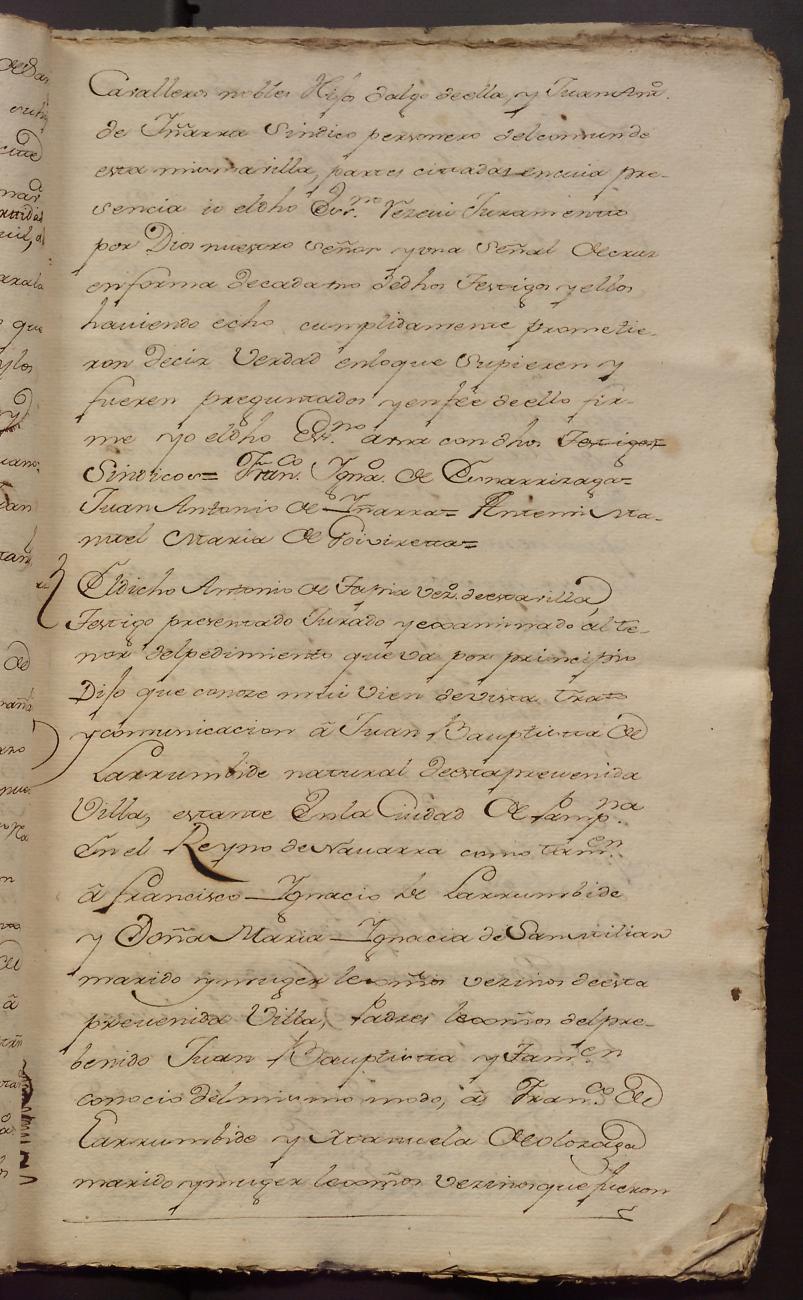 Cavalleros nobles Hijo dalgo de ella, y Juan Antº.
de Iñarra Sindico personero del comun de
esta misma villa, partes citadas en cuia pre-
sencia io el dho Es.no Rezeui Juramento
por Dios nuestro Señor y vna Señal de cruz
en forma de cada vno de dhos Testigos y ellos
haviendo echo cumplidamente prometie-
ron decir Verdad en lo que Supieren y
fueren preguntados y en fee de ello fir-
me yo el dho Es.no a vna con dhos Testigos
Sindicos= Fran.co Ignº. de
Juan Antonio de Iñarra= Antemi Ma-
nuel Maria de Goivireta=
El dicho Antonio de Vezº. de esta villa
Testigo presentado Jurado y examinado al te-
nor del pedimiento que va por principio
Dijo que conoze mui vien de vista trato
y comunicacion â Juan Bauptista de
Larrumbide natural de esta prevenida
Villa, estante En la Ciudad de Pamp.na
En el Reyno de Navarra como tam.en
â Francisco Ignacio de Larrumbide
y Doña Maria Ignacia de Sanmilian
marido y muger lexmos vezinos de esta
prevenida Villa, Padres lexmos del pre-
benido Juan Bauptista y Tam.en
conocio del mismo modo, â Fran.co de
Larrumbide y Manuela de olozaga
marido y muger lexmos vezinos que fueron